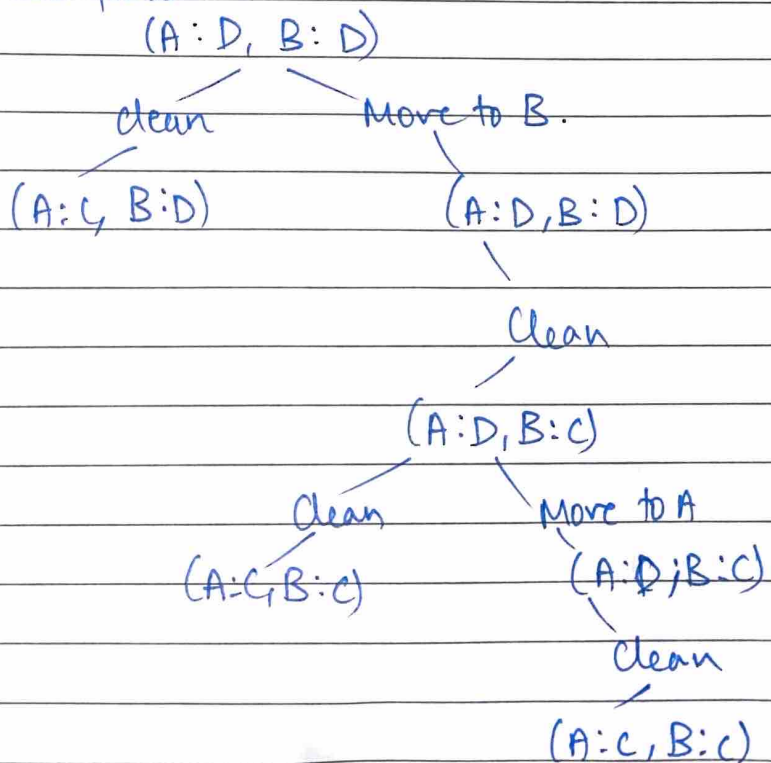 (A : D, B : D)
clean Move to B.
(A : C, B : D) (A : D, B : D)
Clean
(A : D, B : C)
Clean Move to A
(A : C, B : C) (A : D ; B : C)
Clean
(A : C, B : C)